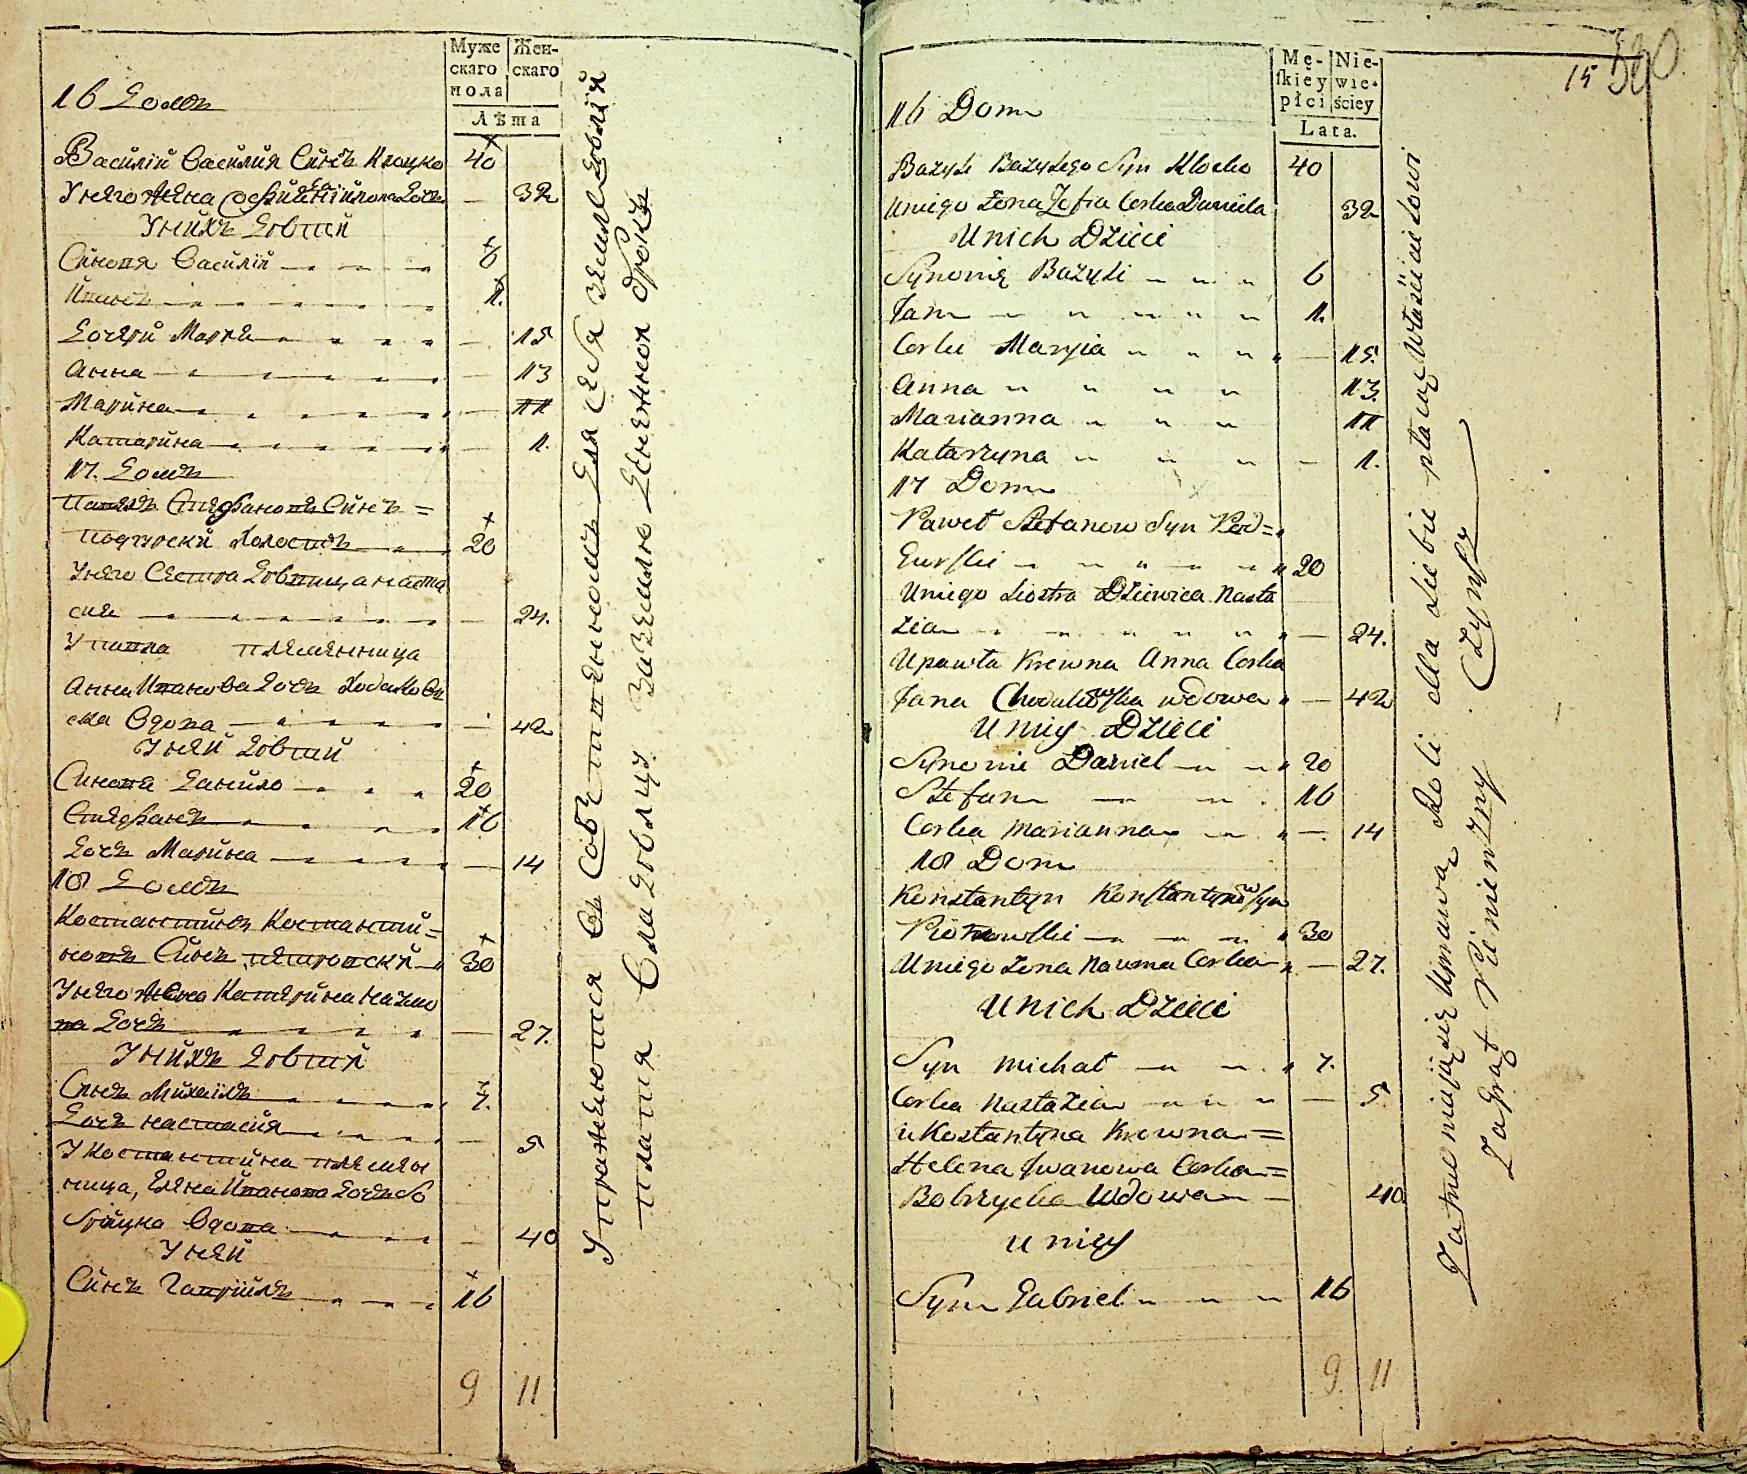 Муже скаго пола
Жен- скаго
Лѣта
16 Домъ
Василій Василия Синъ Клоцко 40
У него жена София Данійлова Дочь — 32
У нихъ Дѣвти
Синовя Василій 6
Иванъ 1.
Дочери Марья — 15
Анна — 13
Марйна — 11
Катарйна — 1.
17. Домъ
Павелъ Стефановъ Синъ =
Подгурски Холостъ 20
У него Сестра Дѣвица наста
сия — 24.
У павла племенница
Анна Иванова Дочь Ходаковъ
ска Вдова — 42
У ней Дѣвти
Синовя Данйло 20
Стефанъ 16
Дочь Марйна — 14
18 Домъ
Костантйнъ Костантй=
новъ Синъ петровскй 30
У него жена Катерйна наумо
ва Дочь — 27.
У нихъ Дѣвти
Синъ Михаілъ 7.
Дочь настасия — 5
У костантйна племен
ница, Елена Иванова Дочь Бо
брйцка Вдова — 40
У ней
Синъ Гаврійлъ 16
9 11
Упражнюотся въ Собственномъ для себя земледѣлія
платя владѣлцу за землю денежной оброкъ
15
Mę- skiey płci
Nie- wie- ściey
Lata.
16 Dom
Bazyli Bazylego Syn Klocko 40
Uniego Zona Zofia Corka Daniela 32
Unich Dzieci
Synowie Bazyli 6
Jan 1.
Corki Maryia — 15.
Anna 13.
Marianna 11
Katarzyna — 1.
17 Dom
Paweł Stefanow Syn Pod=
Gurski 20
Uniego Siostra Dziewica Nasta
zia — 24.
U pawła Krewna Anna Corka
Jana Chodakowska wdowa — 42
U niey Dzieci
Synowie Daniel 20
Stefan 16
Corka Marianna — 14
18 Dom
Konstantyn Konstantynow syn
Piotrowski 30
Uniego Zona Nauma Corka — 27.
Unich Dzieci
Syn Michał 7.
Corka Nastazia — 5
u Kostantyna Krewna =
Helena Iwanowa Corka =
Bobrzycka Wdowa — 40
u niey
Syn Gabriel 16
9. 11
Zatrudniaią się Uprawą Roli dla siebie płacąc właścicielowi
za grąt Pieniężny Czynsz